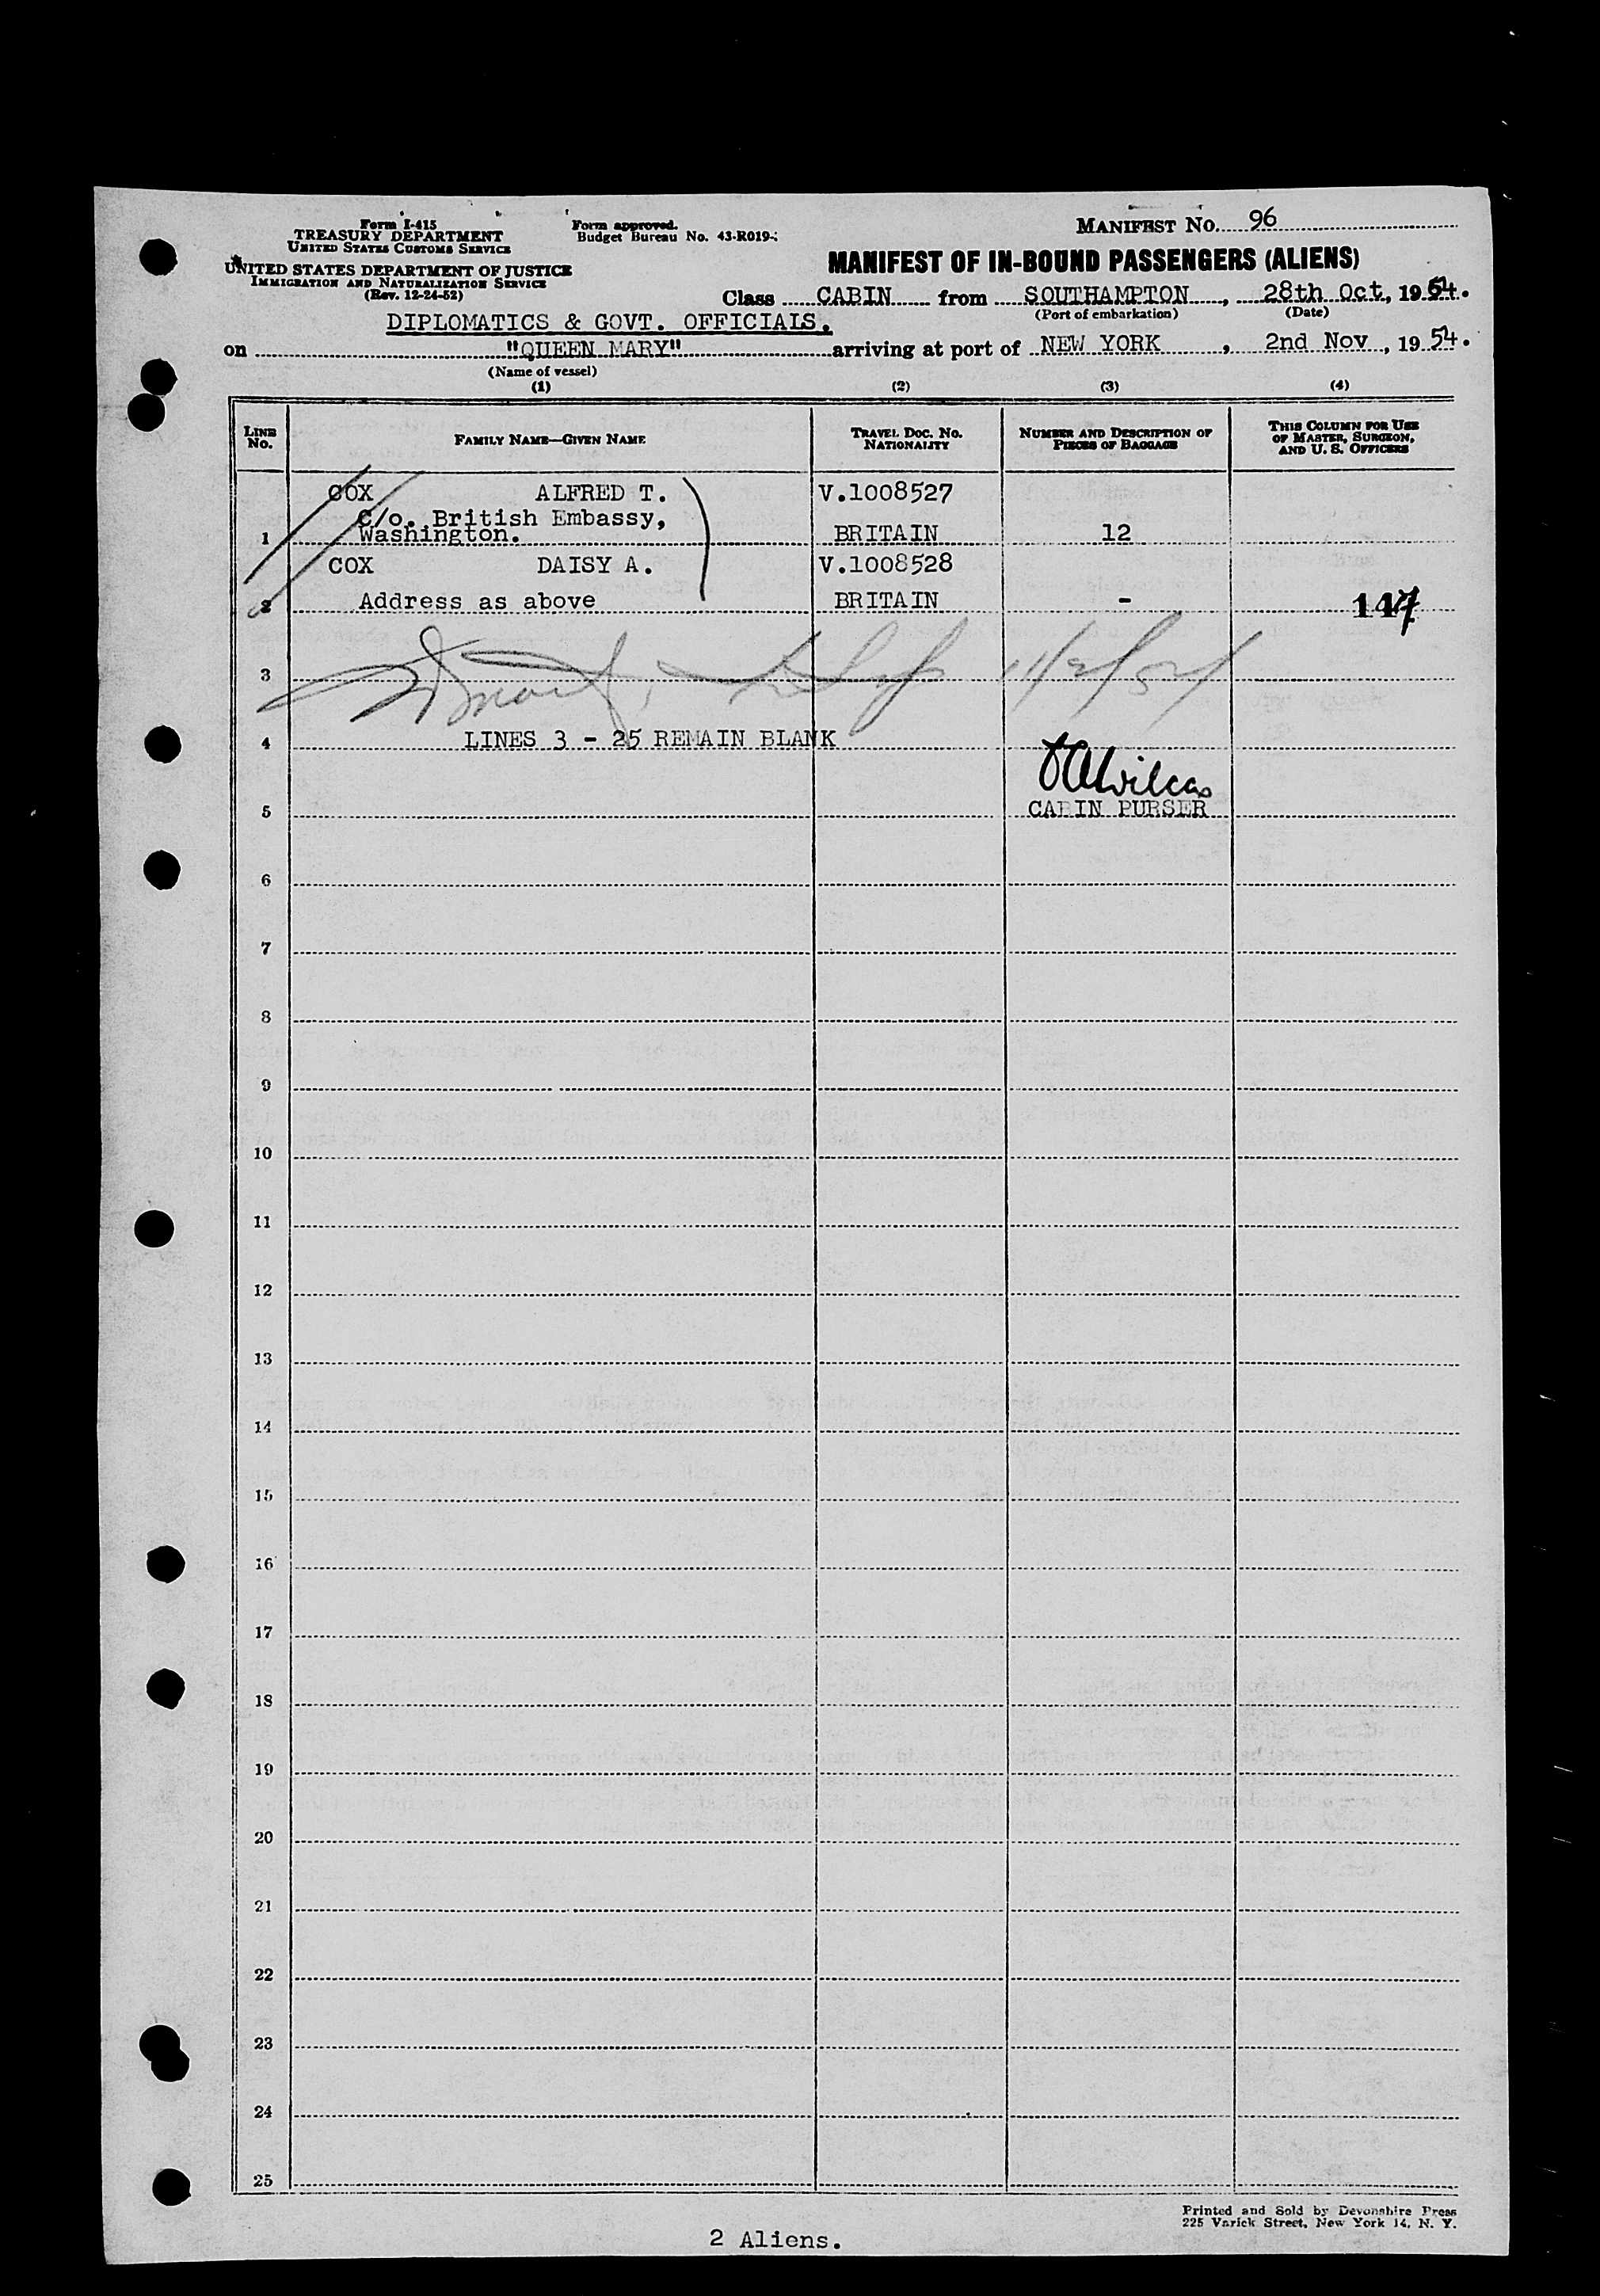 Form I-415
TREASURY DEPARTMENT
UNITED STATES CUSTOMS SERVICE
UNITED STATES DEPARTMENT OF JUSTICE
IMMIGRATION AND NATURALIZATION SERVICE
(Rev. 12-24-52)
Form approved.
Budget Bureau No. 43-R019-
MANIFEST No. 96
MANIFEST OF IN-BOUND PASSENGERS (ALIENS)
Class CABIN from SOUTHAMPTON, 28th Oct, 1954.
(Port of embarkation) (Date)
DIPLOMATICS & GOVT. OFFICIALS.
on "QUEEN MARY" arriving at port of NEW YORK, 2nd Nov, 1954.
(Name of vessel)
(1) (2) (3) (4)
LINE No. FAMILY NAME—GIVEN NAME TRAVEL DOC. NO. NATIONALITY NUMBER AND DESCRIPTION OF PIECES OF BAGGAGE THIS COLUMN FOR USE OF MASTER, SURGEON, AND U. S. OFFICERS
COX ALFRED T. V.1008527
c/o. British Embassy,
1 Washington. BRITAIN 12
COX DAISY A. V.1008528
2 Address as above BRITAIN - 147
3 11/2/54
4 LINES 3 - 25 REMAIN BLANK
Wilcox
5 CABIN PURSER
6
7
8
9
10
11
12
13
14
15
16
17
18
19
20
21
22
23
24
25
Printed and Sold by Devonshire Press
225 Varick Street, New York 14, N. Y.
2 Aliens.